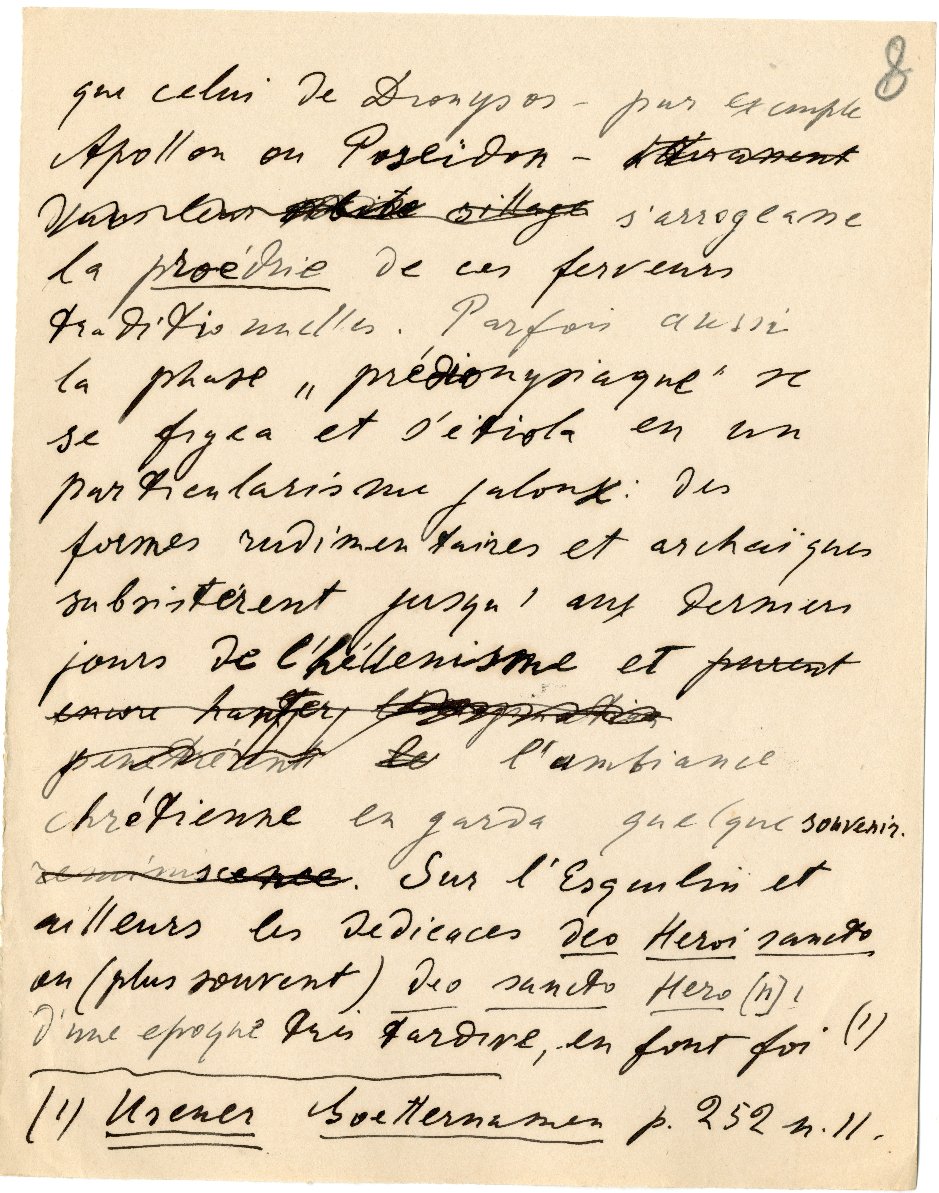 8
que celui de Dionysos – par exemple
Apollon ou Poseidon –
dans leur sillage s'arrogeasse
la proédrie de ces ferveurs
traditionnelles. Parfois aussi
la phase „ prédionysiaque" se
se figea et s'étiola en un
particularisme jaloux: des
formes rudimentaires et archaïques
subsistèrent jusqu' aux derniers
jours de l'héllenisme et purent
encore hanter,
penétrèrent la l'ambiance
chrétienne en garda quelque souvenir.
reminiscence. Sur l'Esquilin et
ailleurs les dedicaces deo Heroi sancto
ou (plus souvent) deo sancto Hero [n]i
d'une epoque très tardive, en font foi (1)
(1) Usener Goetternamen p. 252 n. 11.